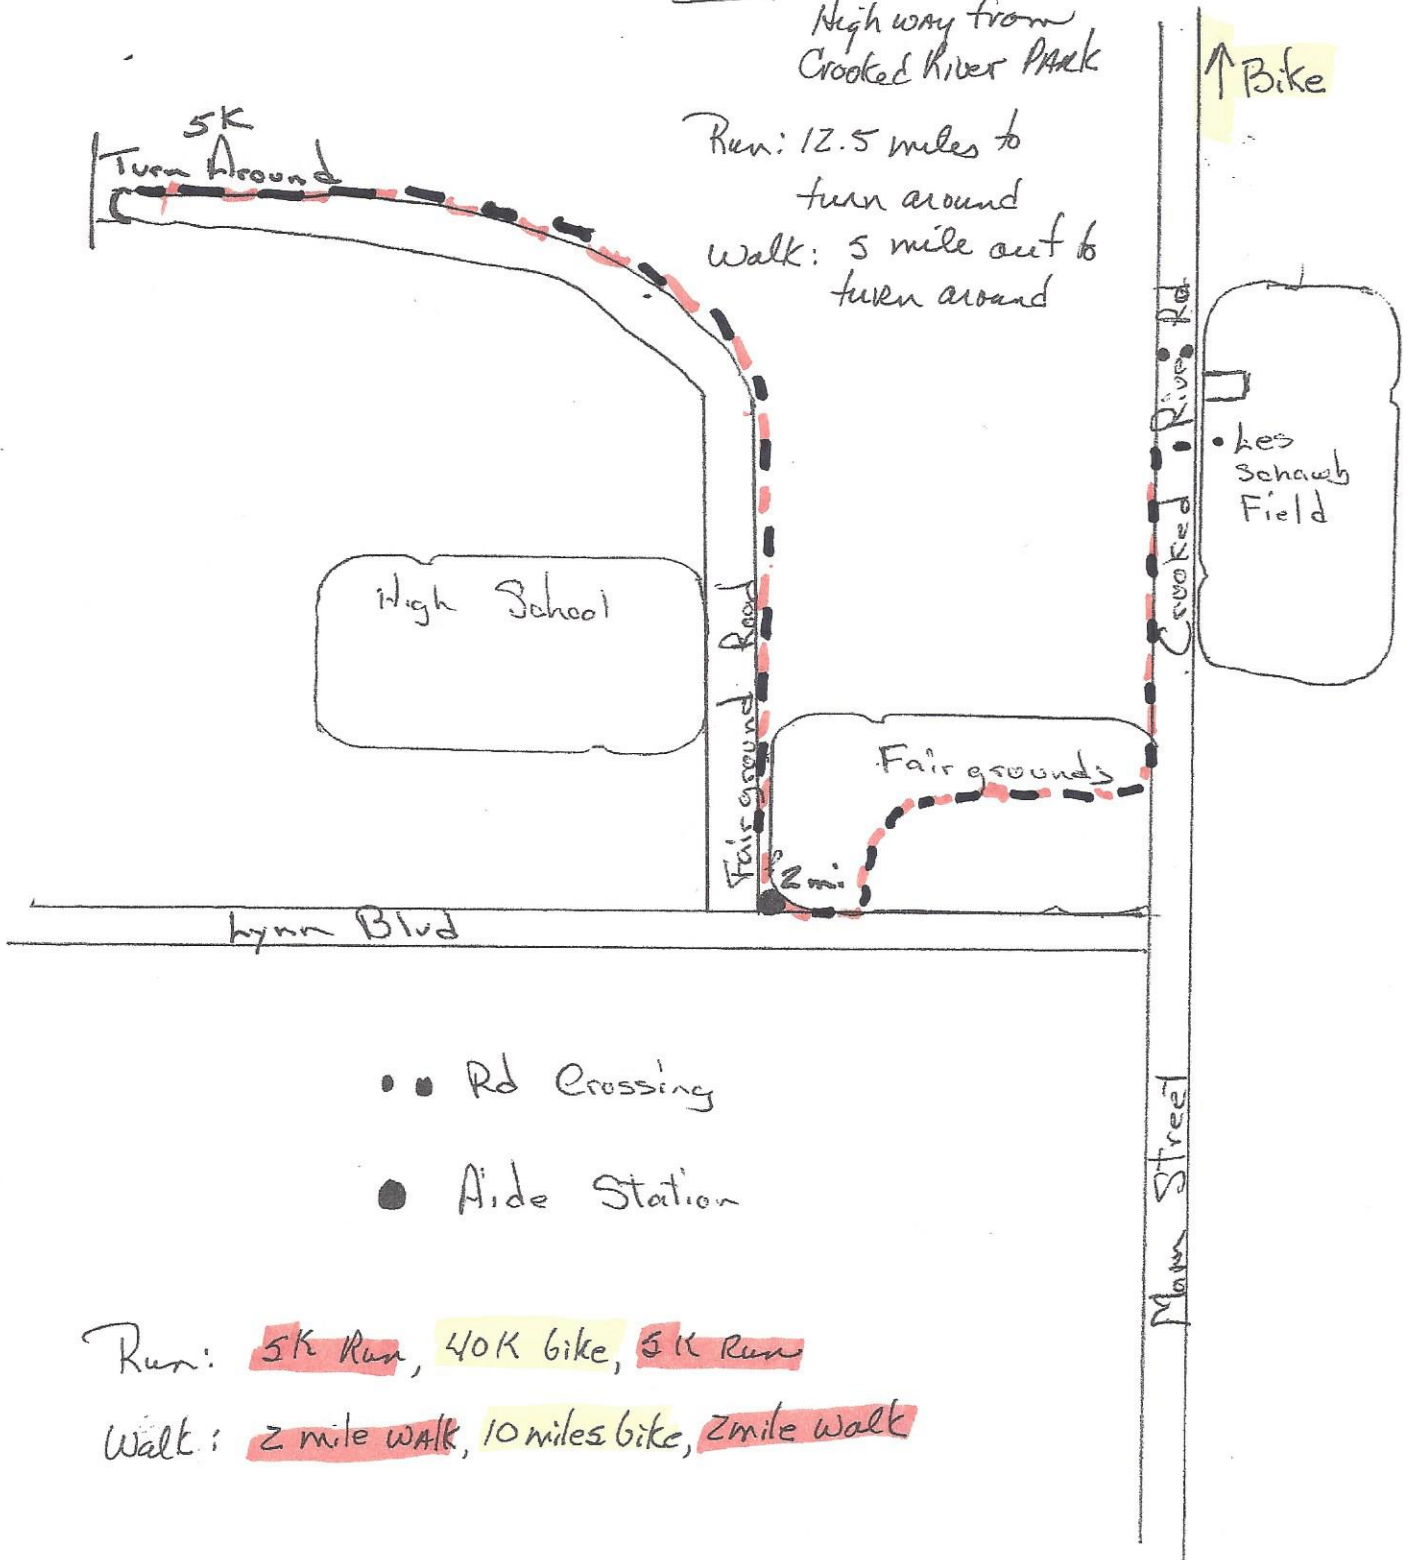 Highway from
Crooked River PARK
↑ Bike
Run: 12.5 miles to
turn around
Walk: 5 mile out to
turn around
5K
Turn Around
Crooked River Rd
• Les
Schawb
Field
High School
Fairground Road
Fairgrounds
2 mi.
Lynn Blvd
•• Rd Crossing
● Aide Station
Main Street
Run: 5K Run, 40K bike, 5K Run
Walk: 2 mile WAlk, 10 miles bike, 2 mile walk